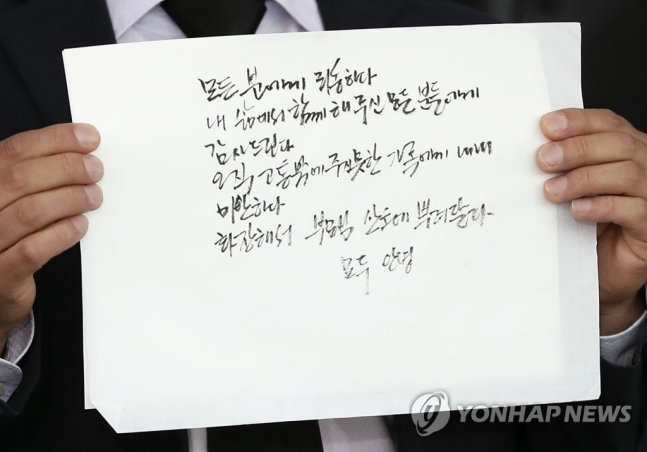 모든 분에게 죄송하다
내 삶에서 함께해주신 모든 분들에게
감사드린다
오직 고통밖에 주지 못한 가족에게 내내
미안하다
화장해서 부모님 산소에 뿌려달라
모두 안녕
YONHAP NEWS